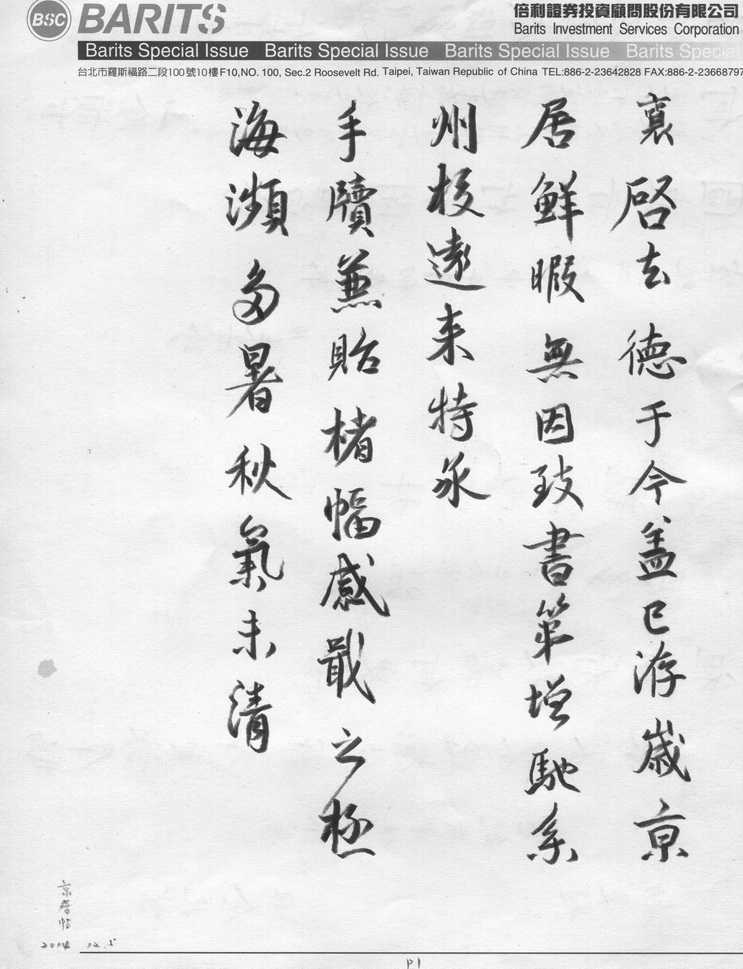 BSC BARITS
倍利證券投資顧問股份有限公司
Barits Investment Services Corporation
Barits Special Issue Barits Special Issue Barits Special Issue Barits Special
台北市羅斯福路二段100號10樓F10,NO. 100, Sec.2 Roosevelt Rd. Taipei, Taiwan Republic of China TEL:886-2-23642828 FAX:886-2-23668797
襄啓去德于今蓋已洊歲京
居鮮暇無因致書第增馳系
州校遠来特承
手牘兼貽楮幅感戢之極
海瀕多暑秋氣未清
京居帖
2014 12.5
P1